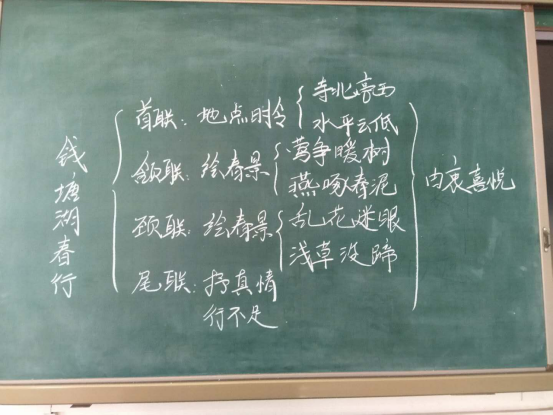 钱塘湖春行
首联：地点时令
寺北亭西
水平云低
颔联：绘春景
莺争暖树
燕啄春泥
颈联：绘春景
乱花迷眼
浅草没蹄
尾联：抒真情
行不足
内衷喜悦